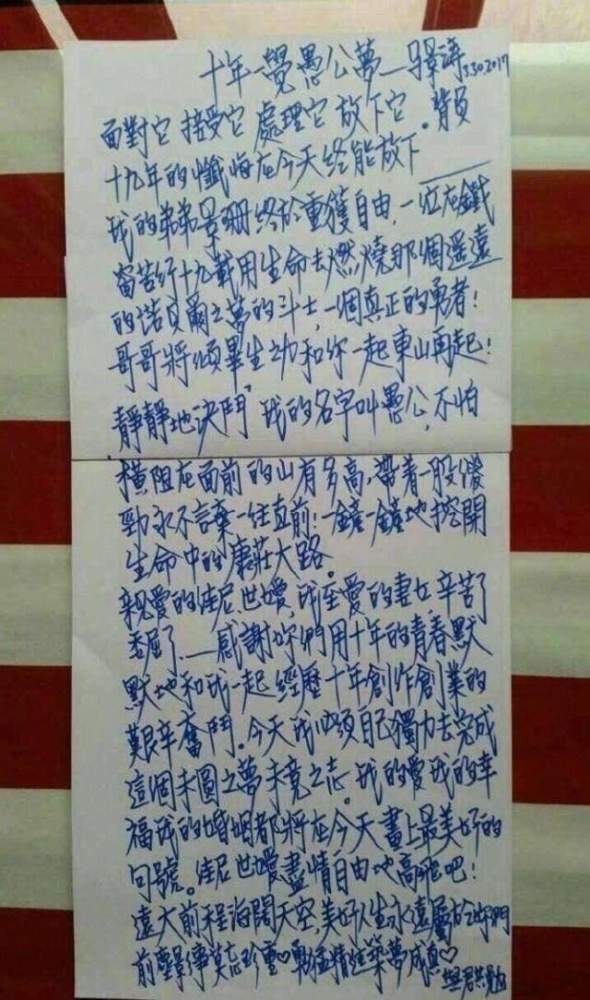 十年一覺愚公夢—景濤 3.30.2017
面對它 接受它 處理它 放下它。背負
十九年的懺悔在今天終能放下
我的弟弟景珊終於重獲自由，一位在鐵
窗苦行十九載用生命去燃燒那個遥遠
的諾貝爾之夢的斗士，一個真正的勇者！
哥哥將傾畢生之力和你一起東山再起！
靜靜地決鬥"我的名字叫愚公，不怕
橫阻在面前的山有多高，帶着一股傻
勁永不言棄一往直前！一鏟一鏟地挖開
生命中的康莊大路。
親愛的佳尼、世嫒，我至愛的妻女，辛苦了
委屈了，—感謝妳們用十年的青春默
默地和我一起經歷十年創作創業的
艱辛奮鬥。今天我必須自己獨力去完成
這個未圓之夢未竟之志。我的愛我的幸
福我的婚姻都將在今天畫上最美好的
句號。佳尼世嫒盡情自由地高飛吧！
遠大前程海闊天空，美好人生永遠屬於妳們
前塵影事莫忘珍重♡勇猛精進築夢成真♡